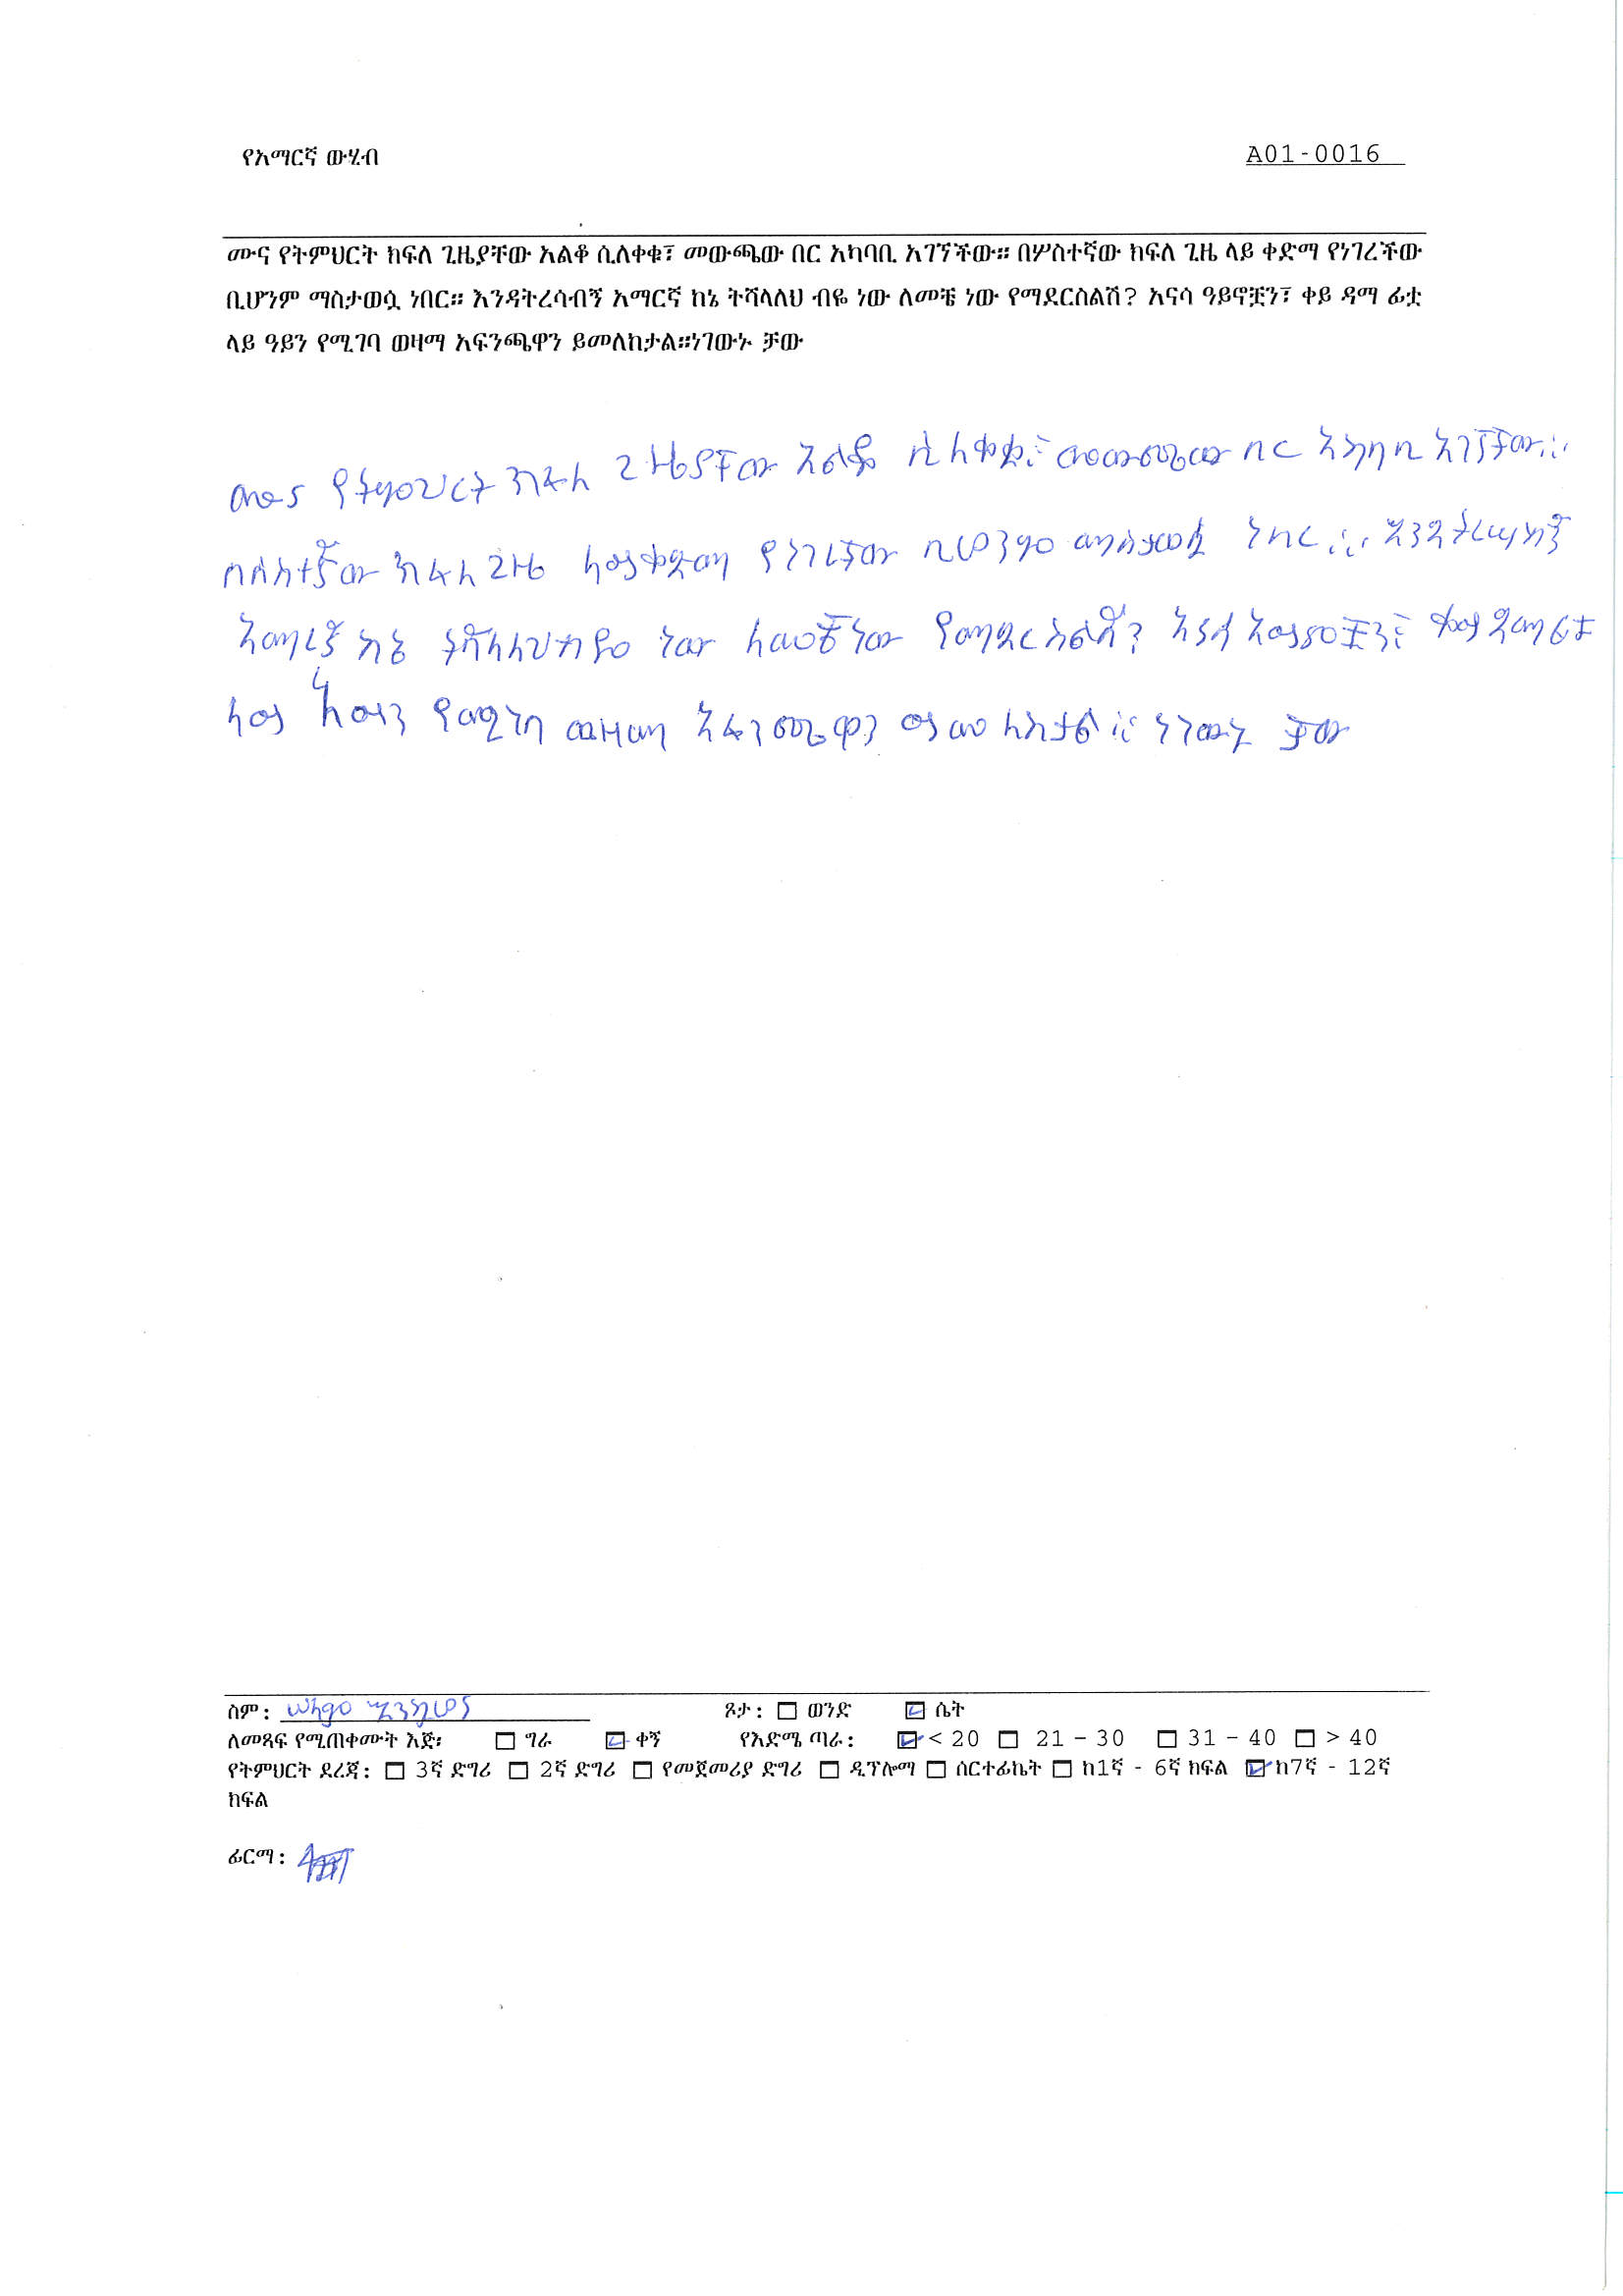 የአማርኛ ውሂብ
A01-0016
ሙና የትምህርት ክፍለ ጊዜያቸው አልቆ ሲለቀቁ፣ መውጫው በር አካባቢ አገኘችው። በሦስተኛው ክፍለ ጊዜ ላይ ቀድማ የነገረችው
ቢሆንም ማስታወሷ ነበር። እንዳትረሳብኝ አማርኛ ከኔ ትሻላለህ ብዬ ነው ለመቼ ነው የማደርስልሽ? አናሳ ዓይኖቿን፣ ቀይ ዳማ ፊቷ
ላይ ዓይን የሚገባ ወዛማ አፍንጫዋን ይመለከታል።ነገውኑ ቻው
ሙና የትምህርት ክፍለ ጊዜያቸው አልቆ ሲለቀቁ፣ መውጫው በር አካባቢ አገኘችው።
በሰስተኛው ክፍለ ጊዜ ላይ ቀድማ የነገረችው ቢሆንም ማስታወሷ ነበር። እንዳትረሳብኝ
አማረኛ ከኔ ትሻላለህ ብዬ ነው ለመቼ ነው የማደርስልሽ? አናሳ አይኖቿን፣ ቀይ ዳማ ፊቷ
ላይ አይን የሚገባ ወዛማ አፍንጫዋን ይመለከታል። ነገውኑ ቻው
ስም: ጾታ: ወንድ ሴት
ለመጻፍ የሚጠቀሙት እጅ፡ ግራ ቀኝ የእድሜ ጣራ: < 20 21 – 30 31 – 40 > 40
የትምህርት ደረጃ: 3ኛ ድግሪ 2ኛ ድግሪ የመጀመሪያ ድግሪ ዲፕሎማ ሰርተፊኬት ከ1ኛ - 6ኛ ክፍል ከ7ኛ - 12ኛ
ክፍል
ፊርማ: